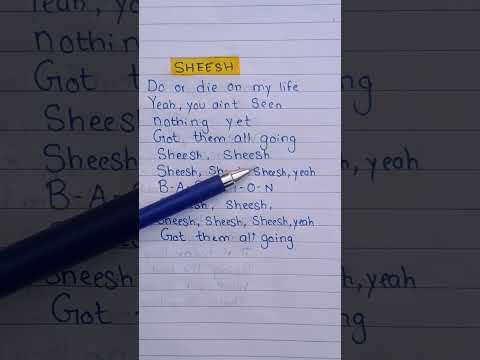 SHEESH
Do or die on my life
Yeah, you aint seen
nothing yet
Got them all going
Sheesh, Sheesh
Sheesh, Sh Sheesh, yeah
B-A- -I-O-N
Sheesh,
Sheesh, Sheesh, Sheesh, yeah
Got them all going